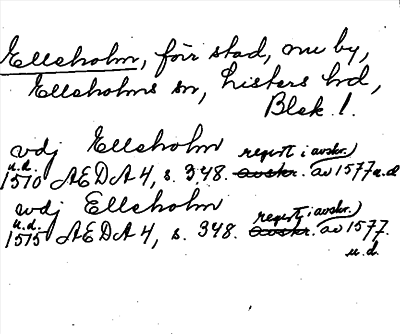 Ellsholm, förr stad, nu by,
Ellsholms sn, Listers hd,
Blek. l.
vdj Ellsholm
u.d. regest i avskr.)
1570 AEDA 4, s. 348. avskr. av 1577 u.d.
wdj Ellsholm
u.d. regest i avskr.)
1575 AEDA 4, s. 348. avskr. av 1577.
u.d.